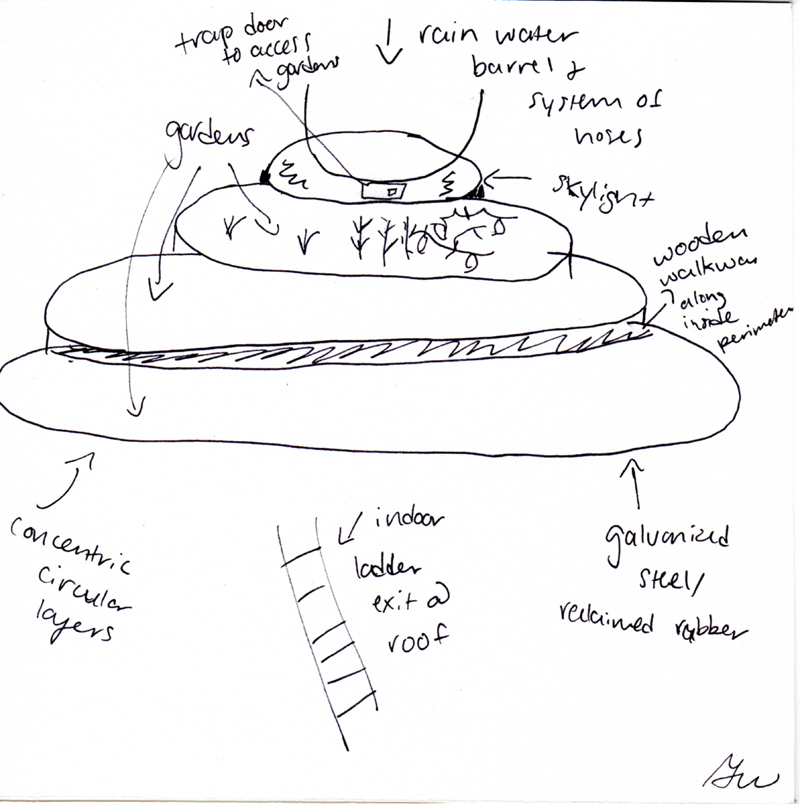 trap door
to access
gardens
rain water
barrel &
system of
hoses
gardens
skylight
wooden
walkway
along
inside
perimeter
concentric
circular
layers
indoor
ladder
exit @
roof
galvanized
steel/
reclaimed rubber